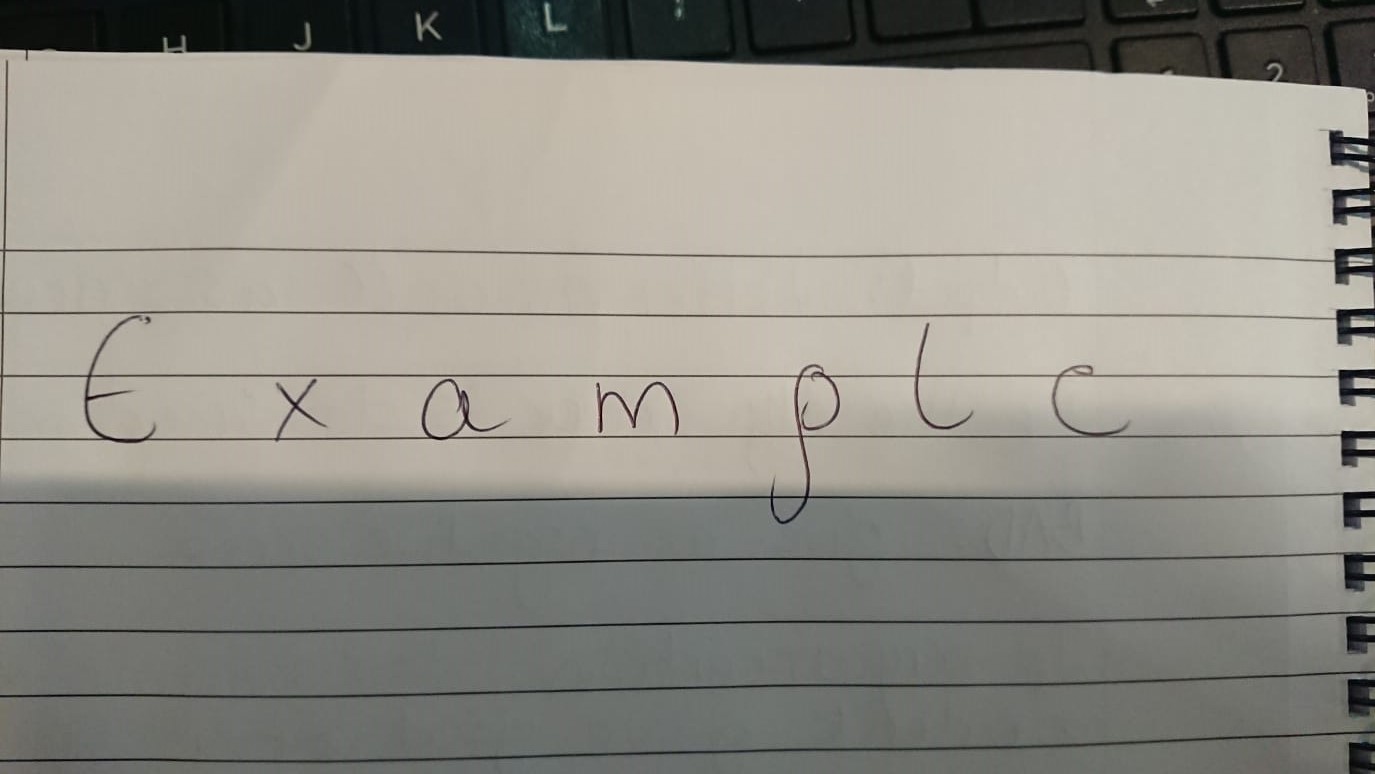 H J K L
2
E x a m p l c